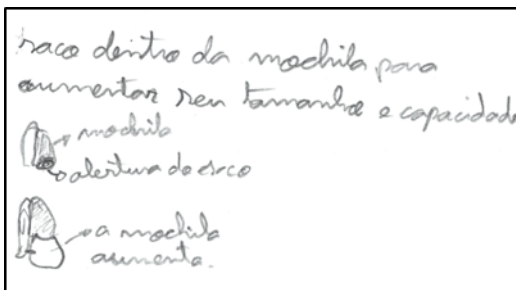 saco dentro da mochila para
aumentar seu tamanho e capacidade
mochila
abertura do saco
a mochila
aumenta.